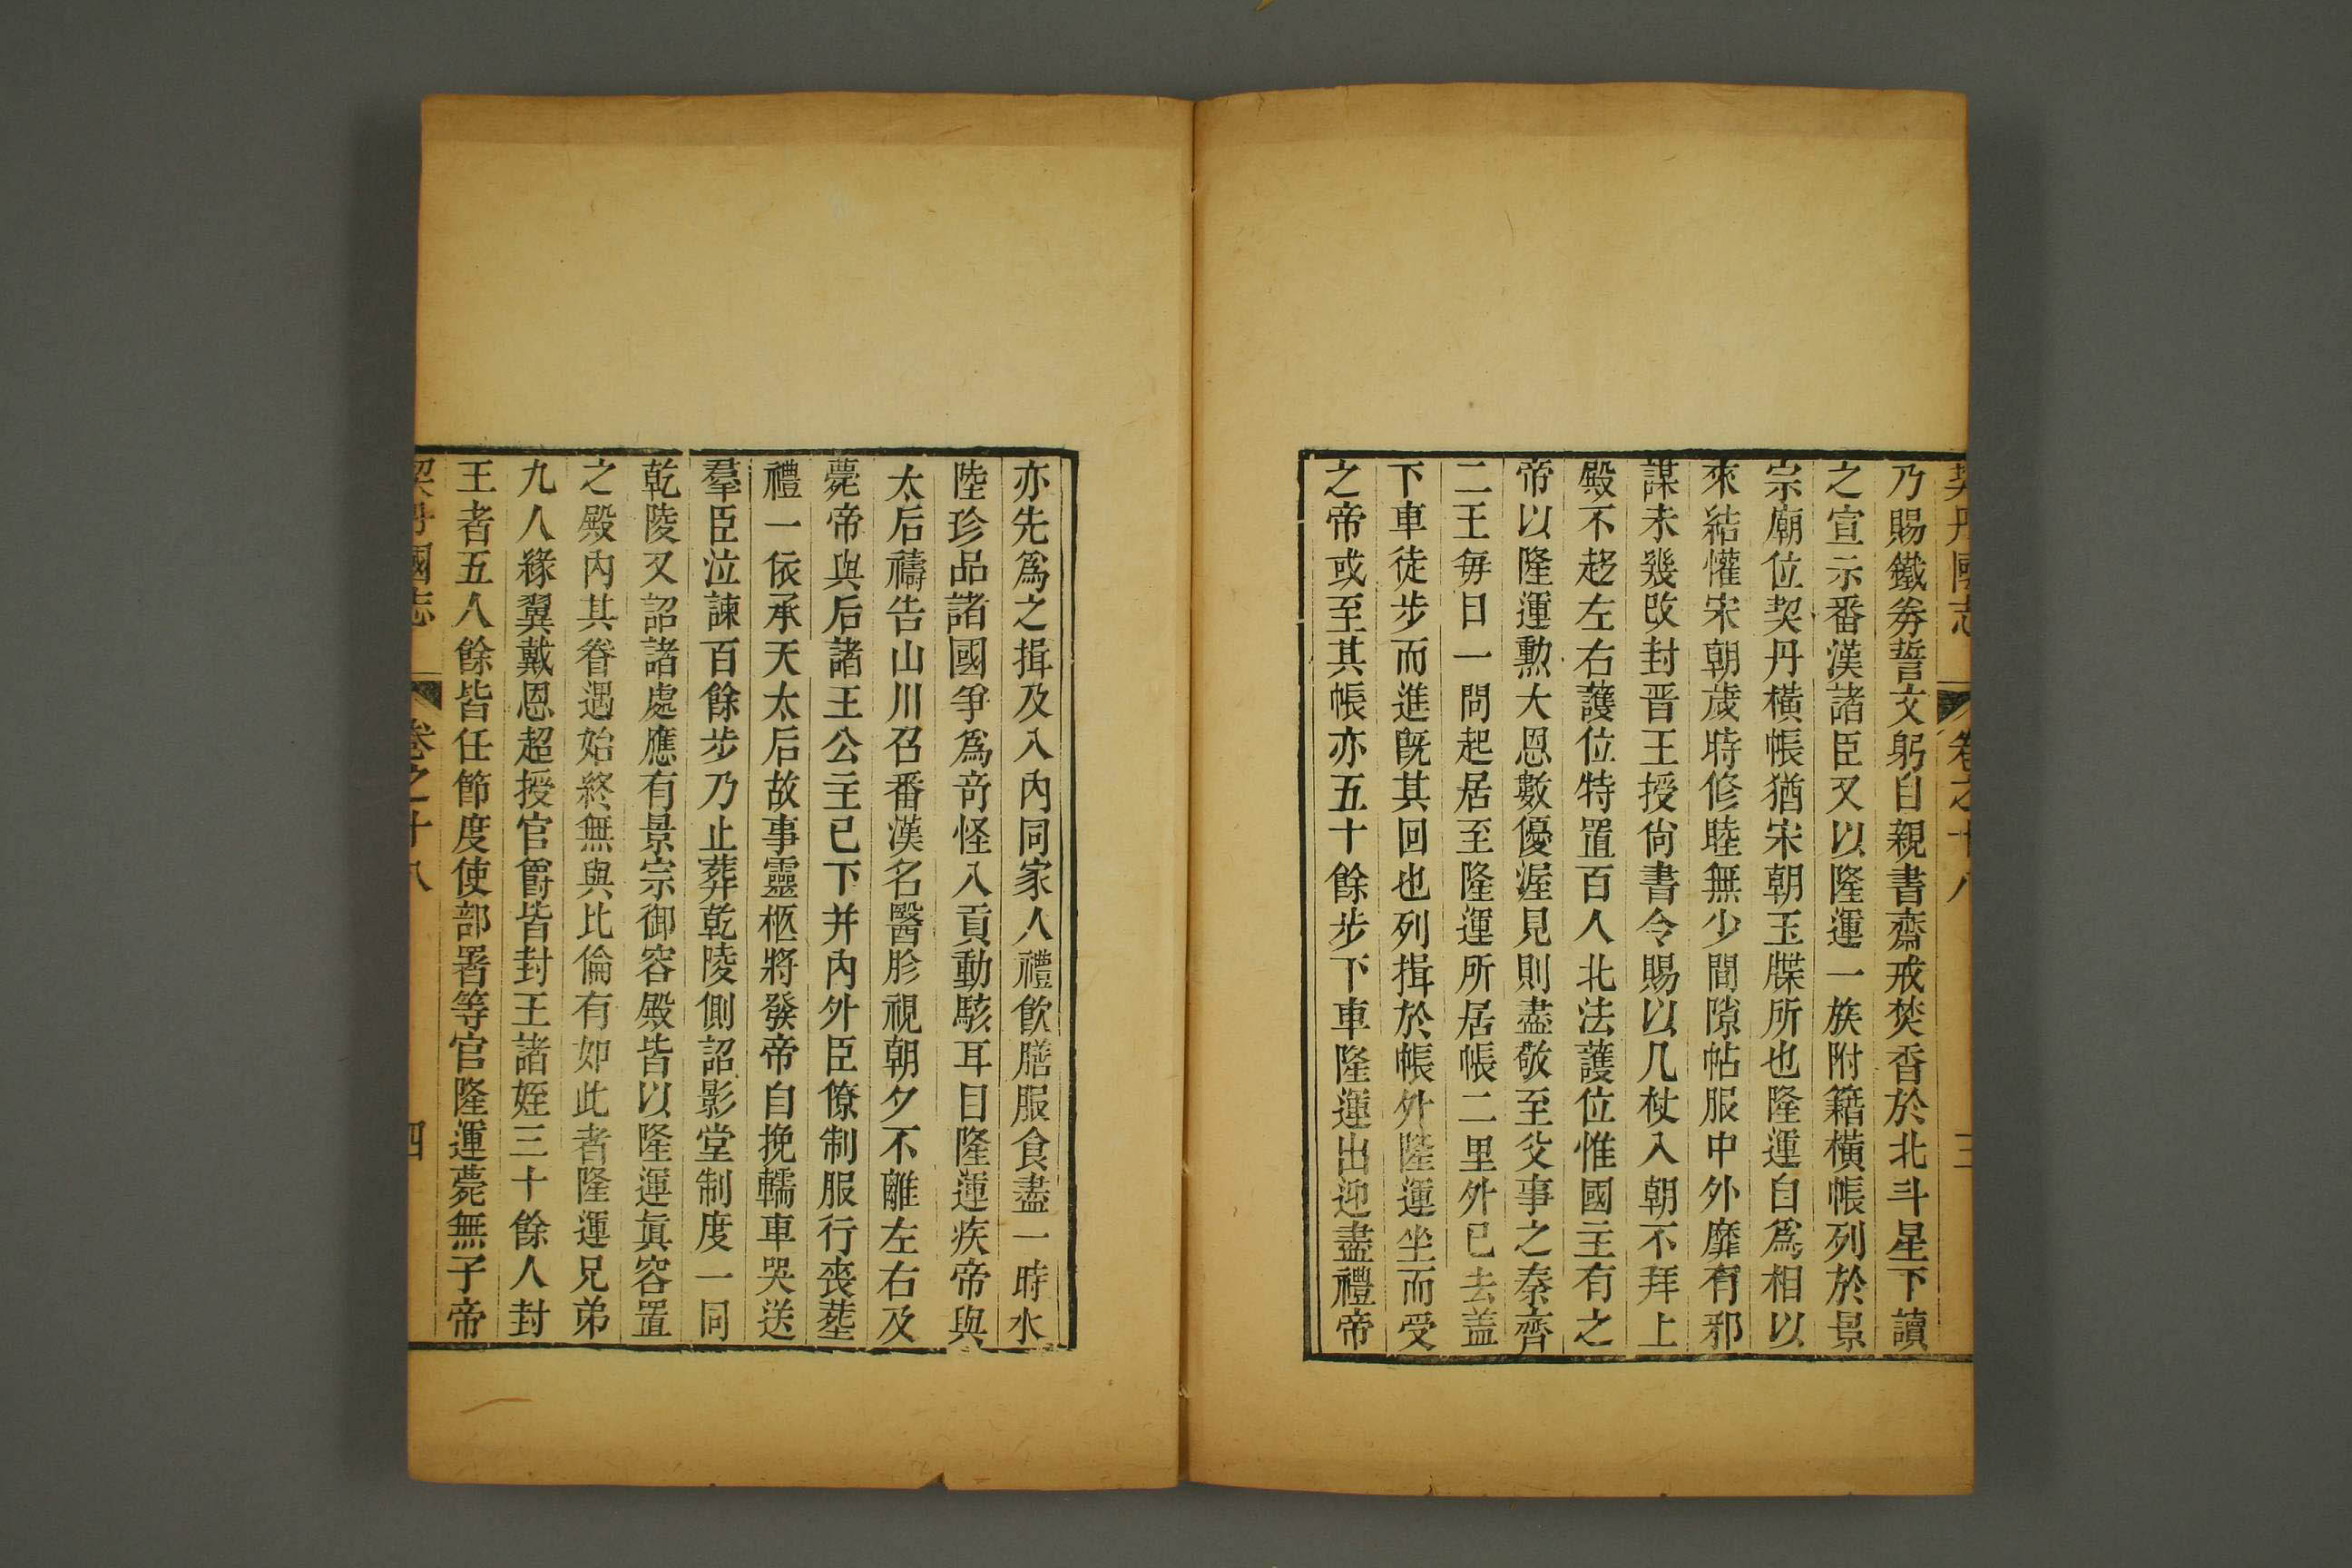 契丹國志 卷之十八 三
乃賜鐵券誓文躬自親書齋戒焚香於北斗星下讀
之宣示番漢諸臣又以隆運一族附籍橫帳列於景
宗廟位契丹橫帳猶宋朝玉牒所也隆運自爲相以
來結懽宋朝歲時修睦無少間隙帖服中外靡有邪
謀未幾改封晋王授尙書令賜以几杖入朝不拜上
殿不趍左右護位特置百人北法護位惟國主有之
帝以隆運勲大恩數優渥見則盡敬至父事之秦齊
二王每日一問起居至隆運所居帳二里外已去盖
下車徒步而進旣其回也列揖於帳外隆運坐而受
之帝或至其帳亦五十餘步下車隆運出迎盡禮帝
亦先爲之揖及入內同家人禮飲膳服食盡一時水
陸珍品諸國爭爲竒怪入貢動駭耳目隆運疾帝與
太后禱告山川召番漢名醫胗視朝夕不離左右及
薨帝與后諸王公主已下并內外臣僚制服行喪塟
禮一依承天太后故事靈柩將發帝自挽轜車哭送
羣臣泣諫百餘步乃止葬乾陵側詔影堂制度一同
乾陵又詔諸處應有景宗御容殿皆以隆運眞容置
之殿內其眷遇始終無與比倫有如此者隆運兄弟
九人緣翼戴恩超授官爵皆封王諸姪三十餘人封
王者五人餘皆任節度使部署等官隆運薨無子帝
契丹國志 卷之十八 四